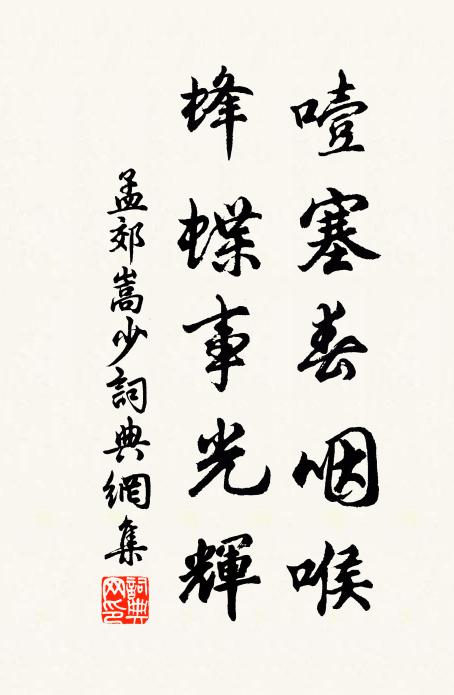 噎塞春咽喉
蜂蝶事光輝
孟郊嵩少詞典網集
詞典网印